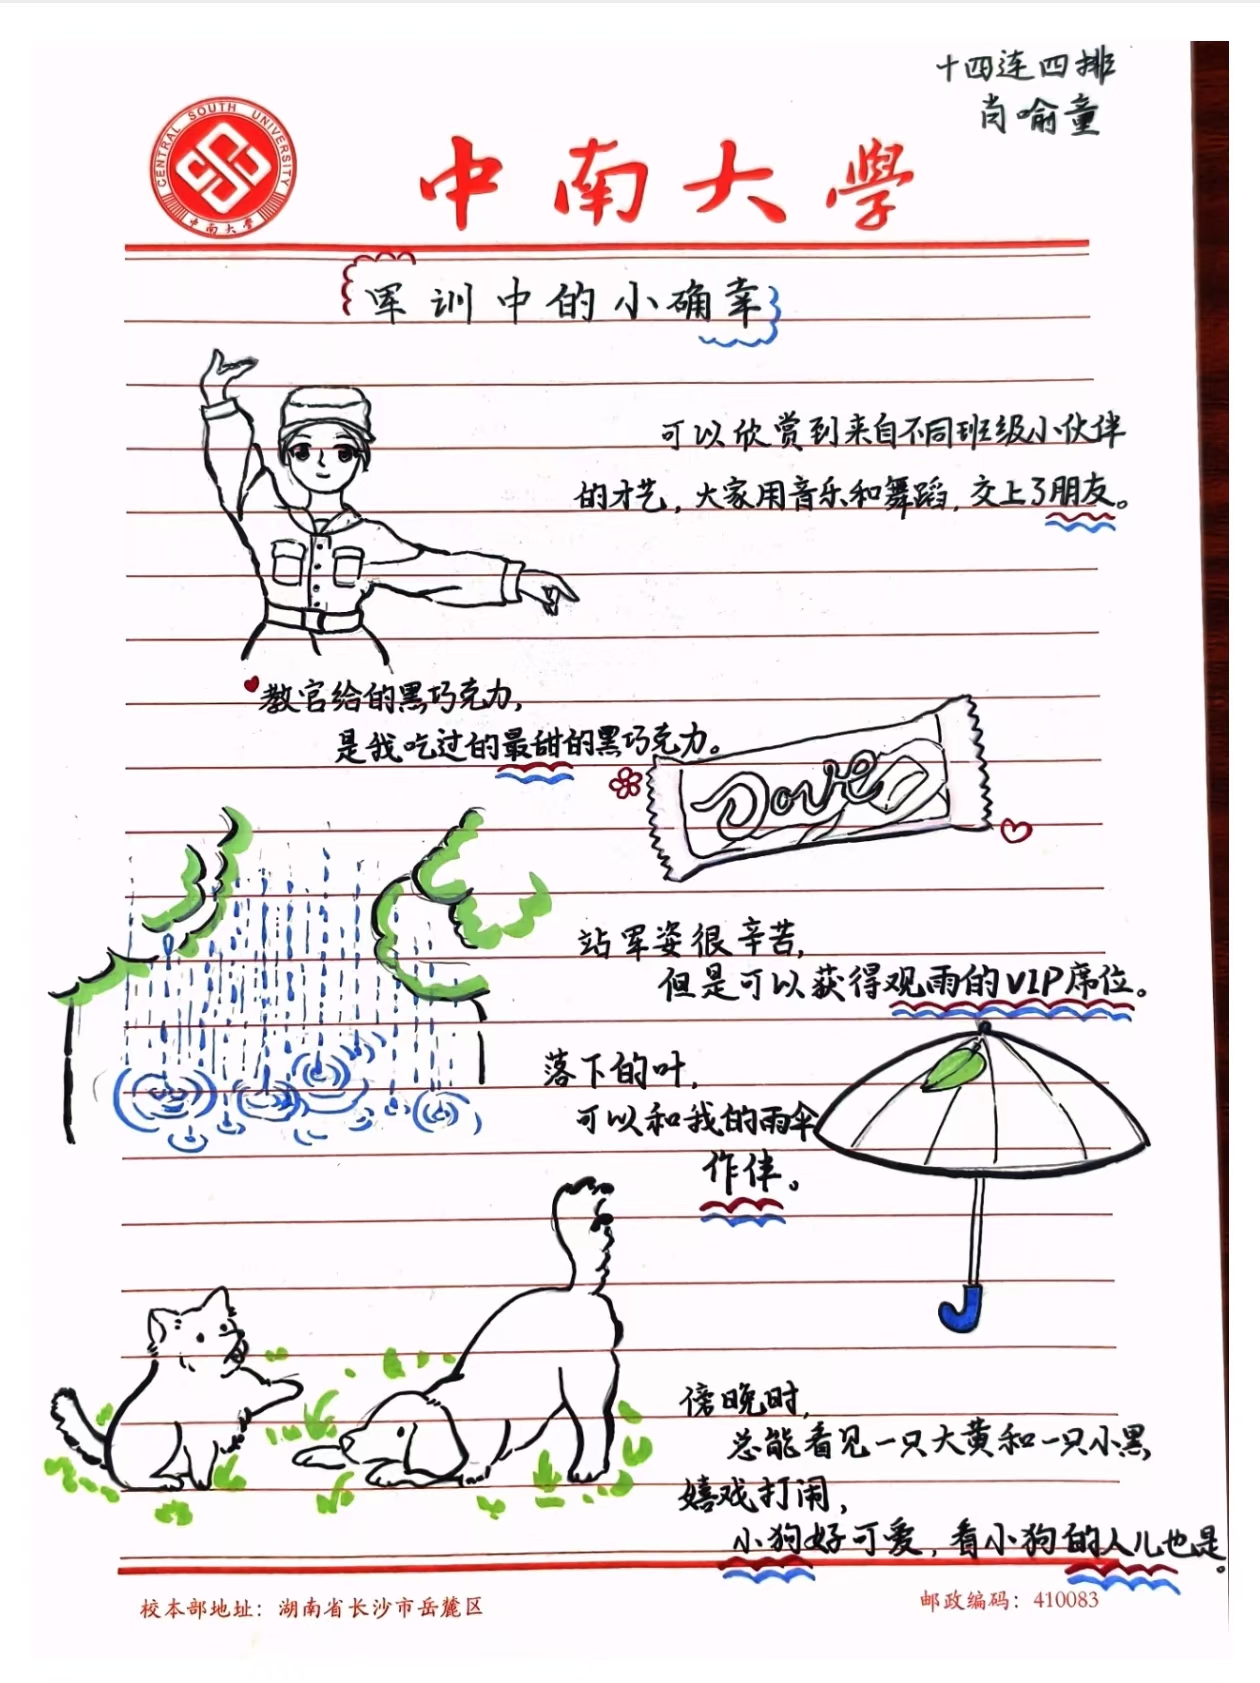 十四连四排
肖喻童
CENTRAL SOUTH UNIVERSITY
中南大学
中南大學
军训中的小确幸
可以欣赏到来自不同班级小伙伴
的才艺，大家用音乐和舞蹈，交上了朋友。
教官给的黑巧克力，
是我吃过的最甜的黑巧克力。
Dove
站军姿很辛苦，
但是可以获得观雨的VIP席位。
落下的叶，
可以和我的雨伞
作伴。
傍晚时，
总能看见一只大黄和一只小黑
嬉戏打闹，
小狗好可爱，看小狗的人儿也是。
校本部地址：湖南省长沙市岳麓区
邮政编码：410083